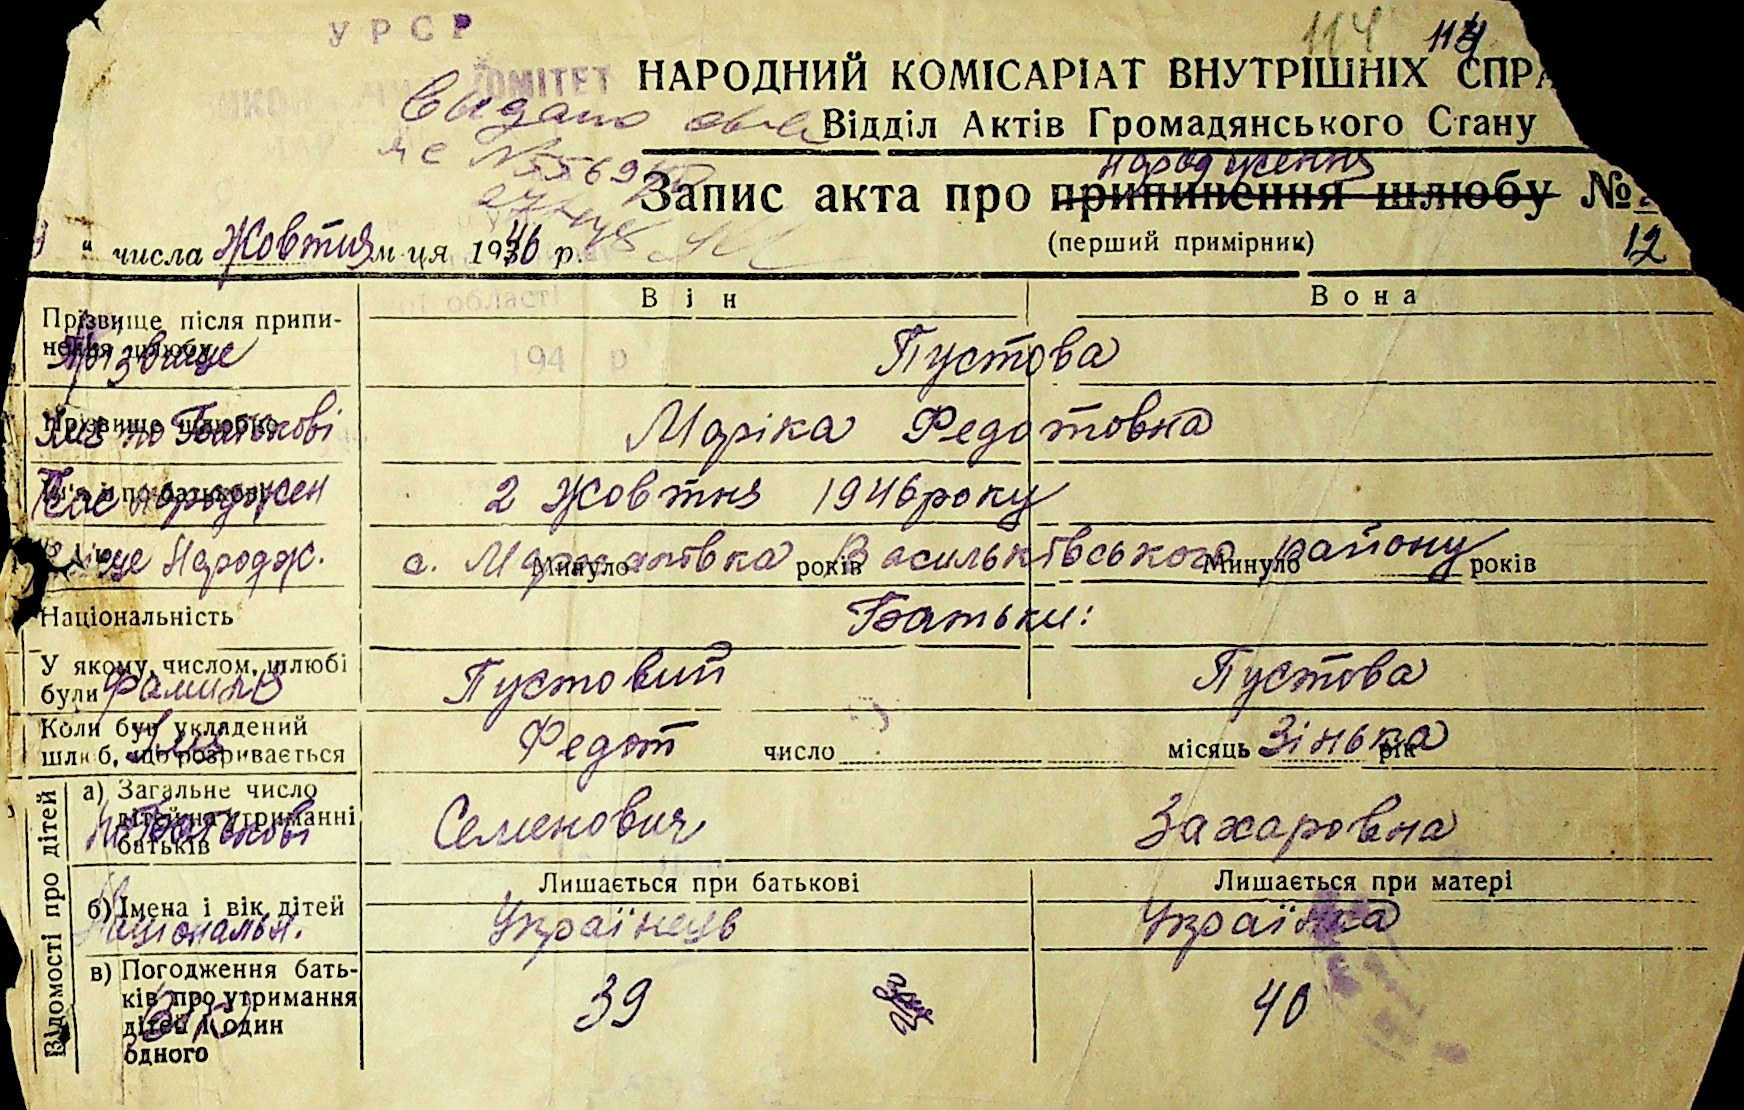 УРСР
114 114
КОМІТЕТ
НАРОДНИЙ КОМІСАРІАТ ВНУТРІШНІХ СПРА
Видано
Відділ Актів Громадянського Стану
народження
Запис акта про припинення шлюбу №
12
(перший примірник)
" числа Жовтня м-ця 1946 р.
області
Він Вона
Прізвище після припинення шлюбу
Прізвище Пустова
194 р
Прізвище шлюбне
Імя по Батькові Маріка Федотовна
Ім'я і по батькові
Час народжен 2 Жовтня 1946 року
Місце Народж. с. Васильківського району
Минуло років Минуло років
Національність Батьки:
У якому, числом, шлюбі були
Фамилія Пустовий Пустова
Коли був укладений шлюб, що розривається
Імя Федот число місяць Зінька рік
Відомості про дітей
а) Загальне число дітей на утриманні батьків
По Батькові Семенович Захаровна
Лишається при батькові Лишається при матері
б) Імена і вік дітей
Національн. Українець Українка
в) Погодження батьків про утримання дітей і один одного
39 40